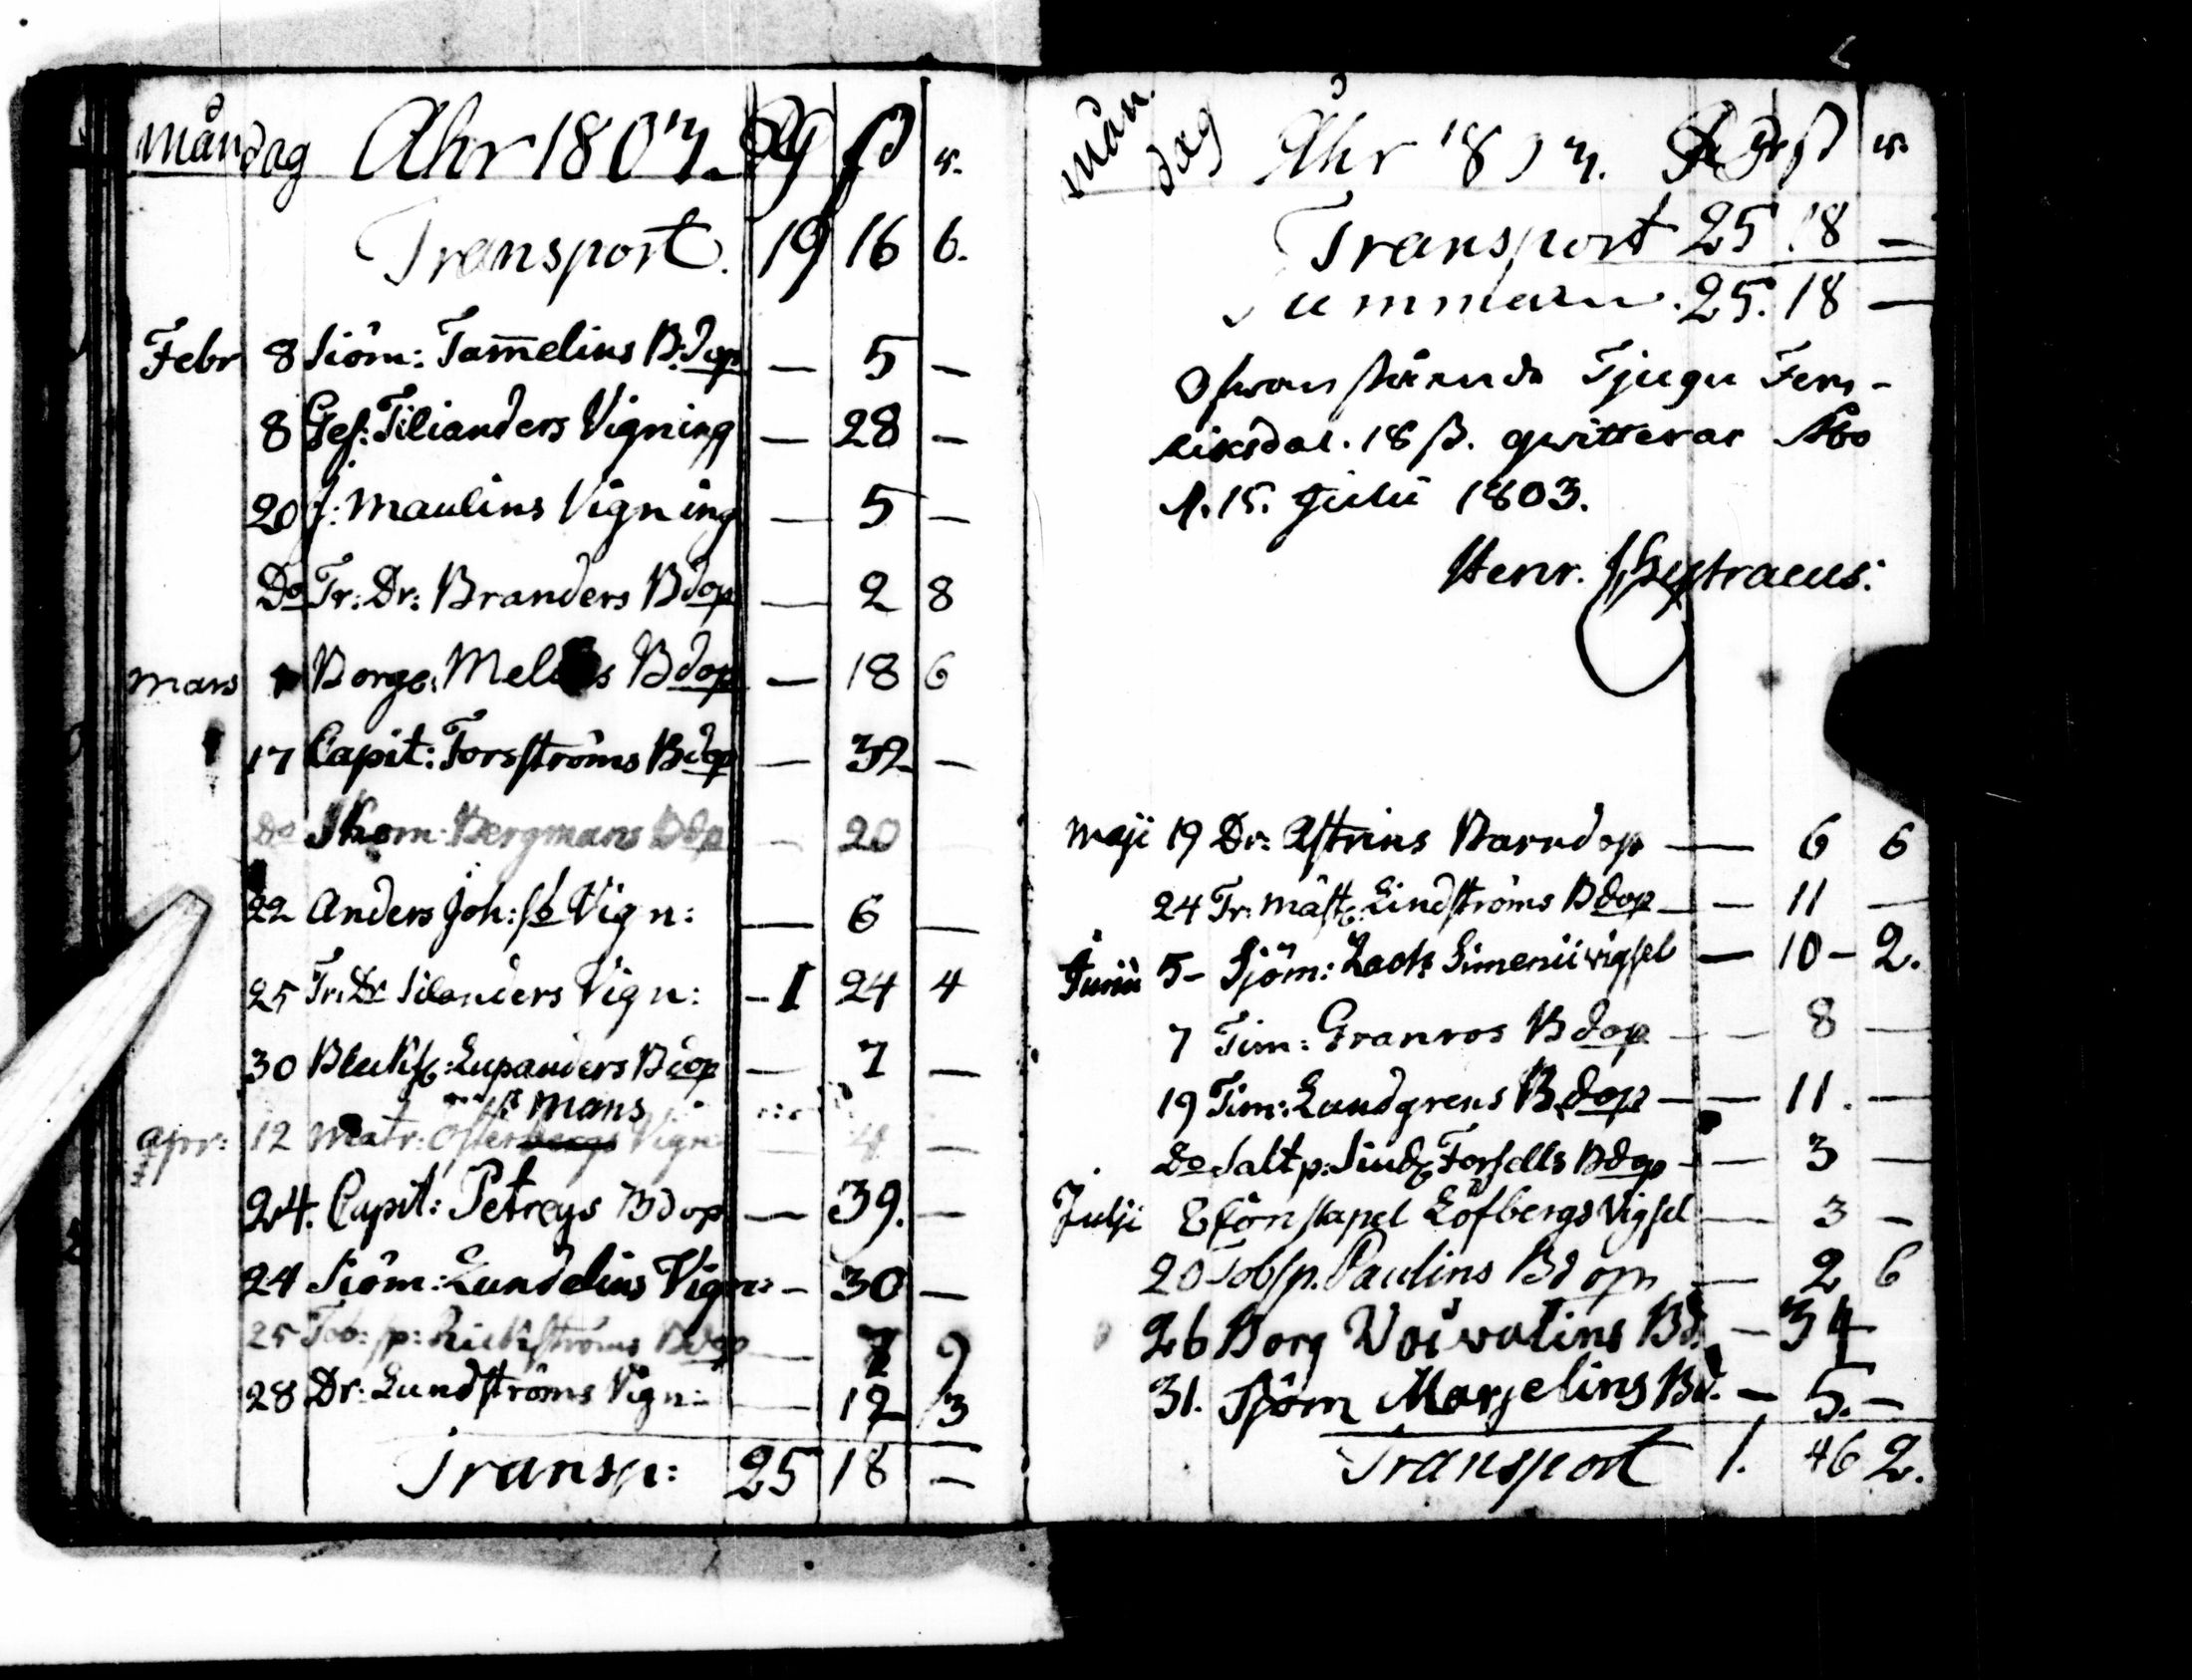 Mån dag Åhr 1803. Rdr ß r.
Transport. 19 16 6.
Febr 8 Siöm: Tam̅elins B:dop — 5 —
8 Ges: Tilianders Vigning — 28 —
20 J: Maulins Vigning — 5 —
Do Tr: Dr: Branders Bdop — 2 8
Mars Borg: Bdop — 18 6
17 Capit: Forsströms Bdop — 32 —
Do Thom: Bergmans Bdop — 20
22 Anders Joh:s Vign: — 6 —
25 Tr: Dr Silanders Vign: - 1 24 4
30 Bleksl: Lupanders Bdop — 7 —
mans
Apr: 12 Matr: Österbergs Vign — 4 —
24. Capit: Petreys Bdop — 39. —
24 Siöm: Lundelins Vign: - 30 —
25 Tob: sp: Rickströms Bdop — 7 9
28 Dr: Lundströms Vign: — 12 3
Transp: 25 18 —
Mån. dag Åhr 1803. Rdr ß r.
Transport 25 18 —
Summan. 25. 18 —
Ofvanstående Tjugu Fem-
Riksdal. 18 ß. qvitteras Åbo
d. 15. Julii 1803.
Henr. Lystraeus.
Maji 19 Dr: Astrins Barndop — 6 6
24 Tr. mäst. Lindströms Bdop — — 11 —
Junii 5 - Sjöm: Zach Simenii vigsel — 10 - 2.
7 Tim: Granros Bdop — — 8 —
19 Tim: Lundgrens B.dop — — 11. —
Do Saltp: Siud: Forsells Bdop - — 3 —
Julji Löfbergs Vigsel — 3 —
20 Tobsp. Paulins Bdop — 2 6
26 Borg Woivalins Bd. — 34
31. Sjöm Marjelins Bd. — 5. —
Transport 1. 46 2.